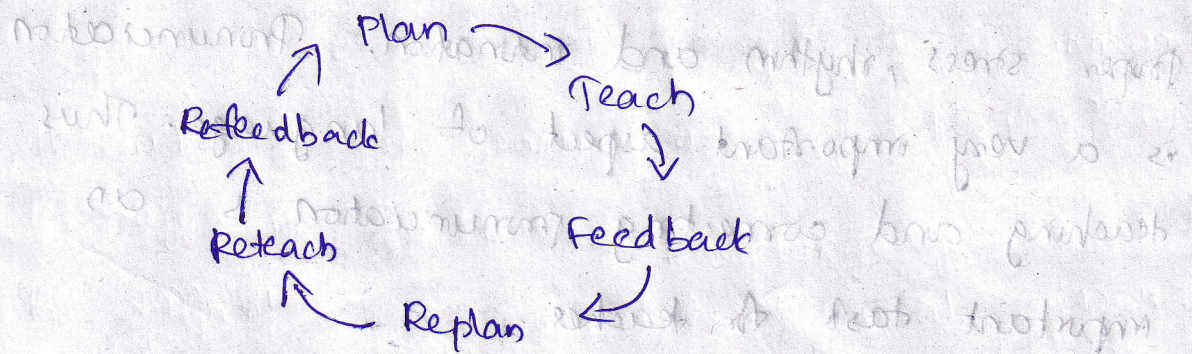 Plan
Teach
Feedback
Replan
Reteach
Refeedback